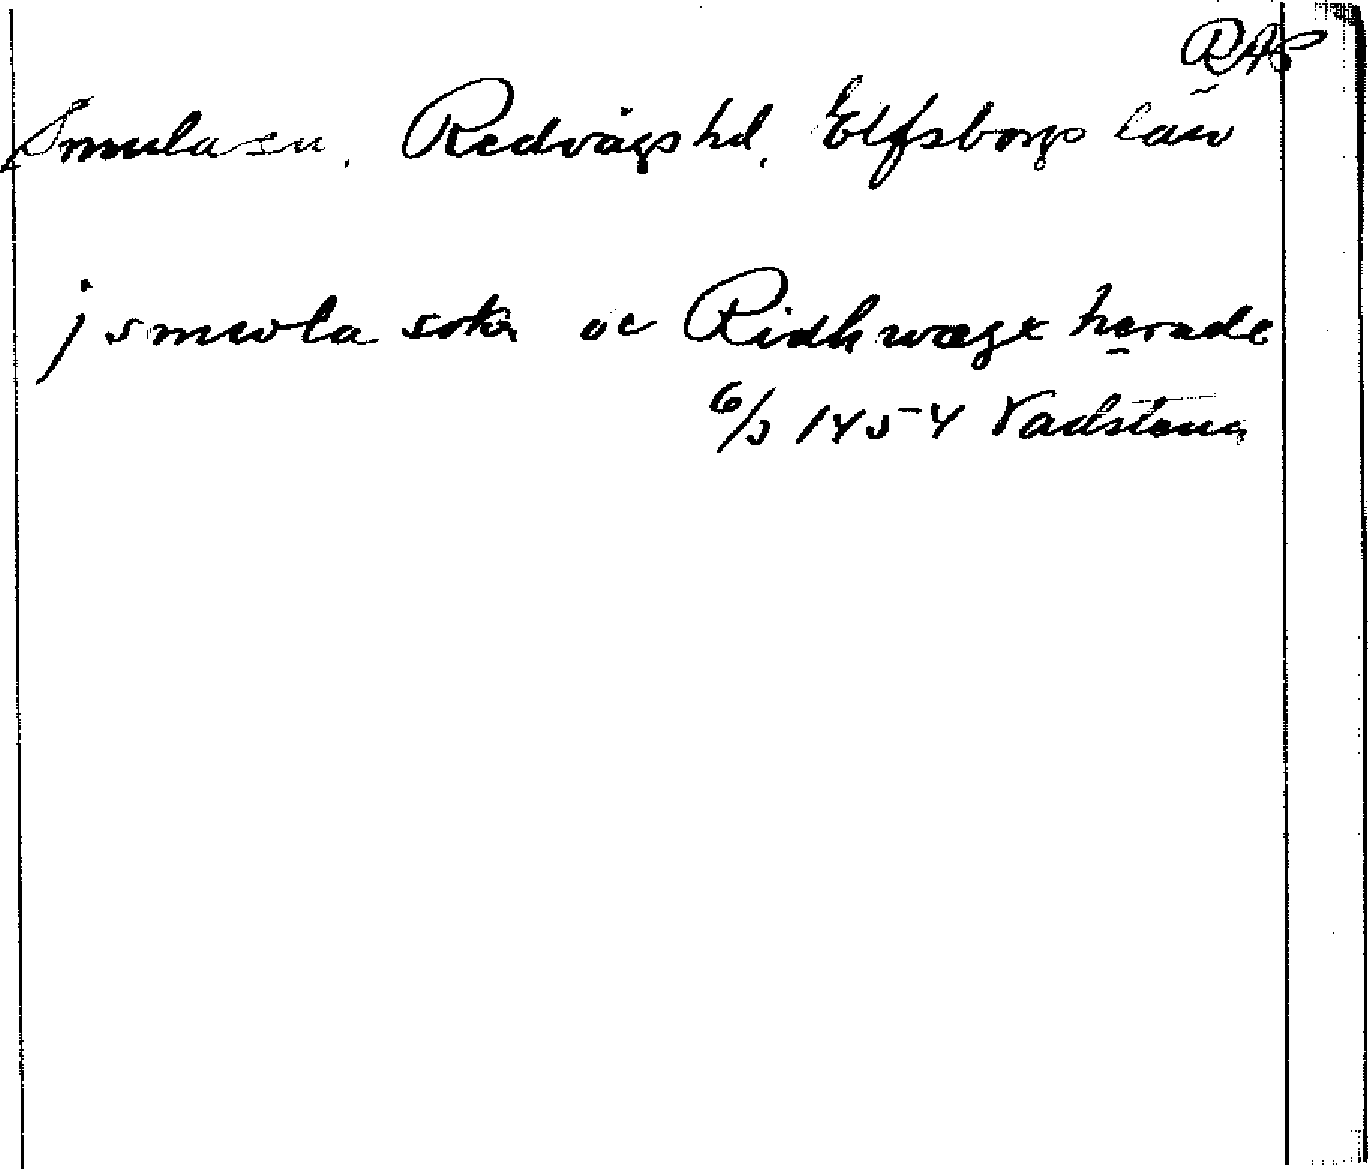 RAP
Smula sn. Redvägs hd. Elfsborgs län
j smwla sokn oc Ridhwægx hærade
6/5 1454 Vadstena